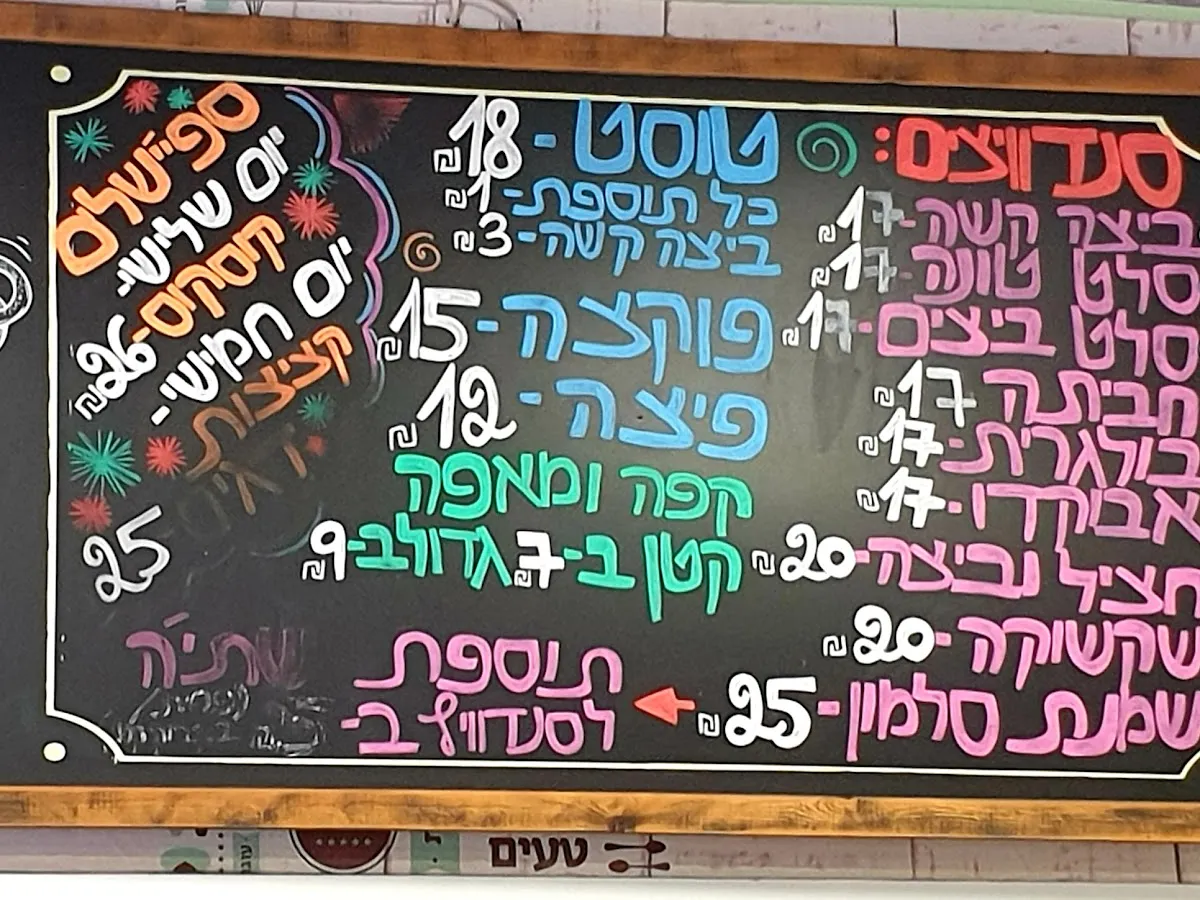 סנדוויצים:
ביצה קשה - 17 ₪
סלט טונה - 17 ₪
סלט ביצים - 17
חביתה 17 ₪
בולגרית - 17 ₪
אבוקדו - 17 ₪
חציל וביצה - 20 ₪
שקשוקה - 20 ₪
שמנת סלמון - 25 ₪
טוסט - 18 ₪
כל תוספת - 1 ₪
ביצה קשה - 3 ₪
פוקצה - 15 ₪
פיצה - 12 ₪
קפה ומאפה
קטן ב - 7 ₪ גדול ב - 9 ₪
תוספת
לסנדוויץ ב -
ספיישלים
יום שלישי -
קוסקוס - 26 ₪
יום חמישי -
קציצות
25
שתיה
טעים